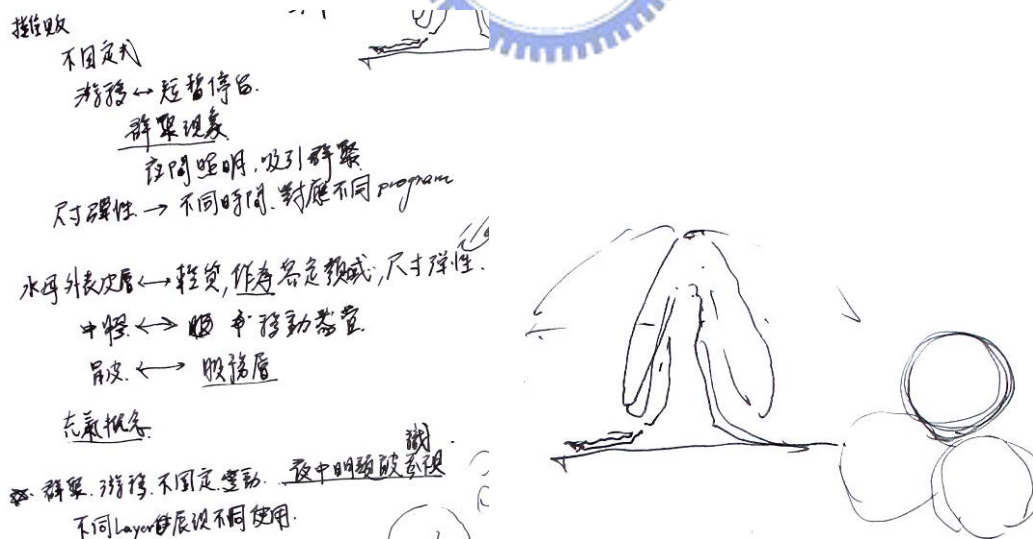 攤販
不固定式
游移↔短暫停留.
群聚現象
夜間照明,吸引群聚
尺寸彈性→不同時間.對應不同program
水母外表皮層↔輕質,作為界定領域,尺寸彈性.
中膠↔移動裝置
胃皮.↔服務層
充氣概念.
群聚.游移.不固定.變動.夜中明顯被識
不同Layer 不同使用.